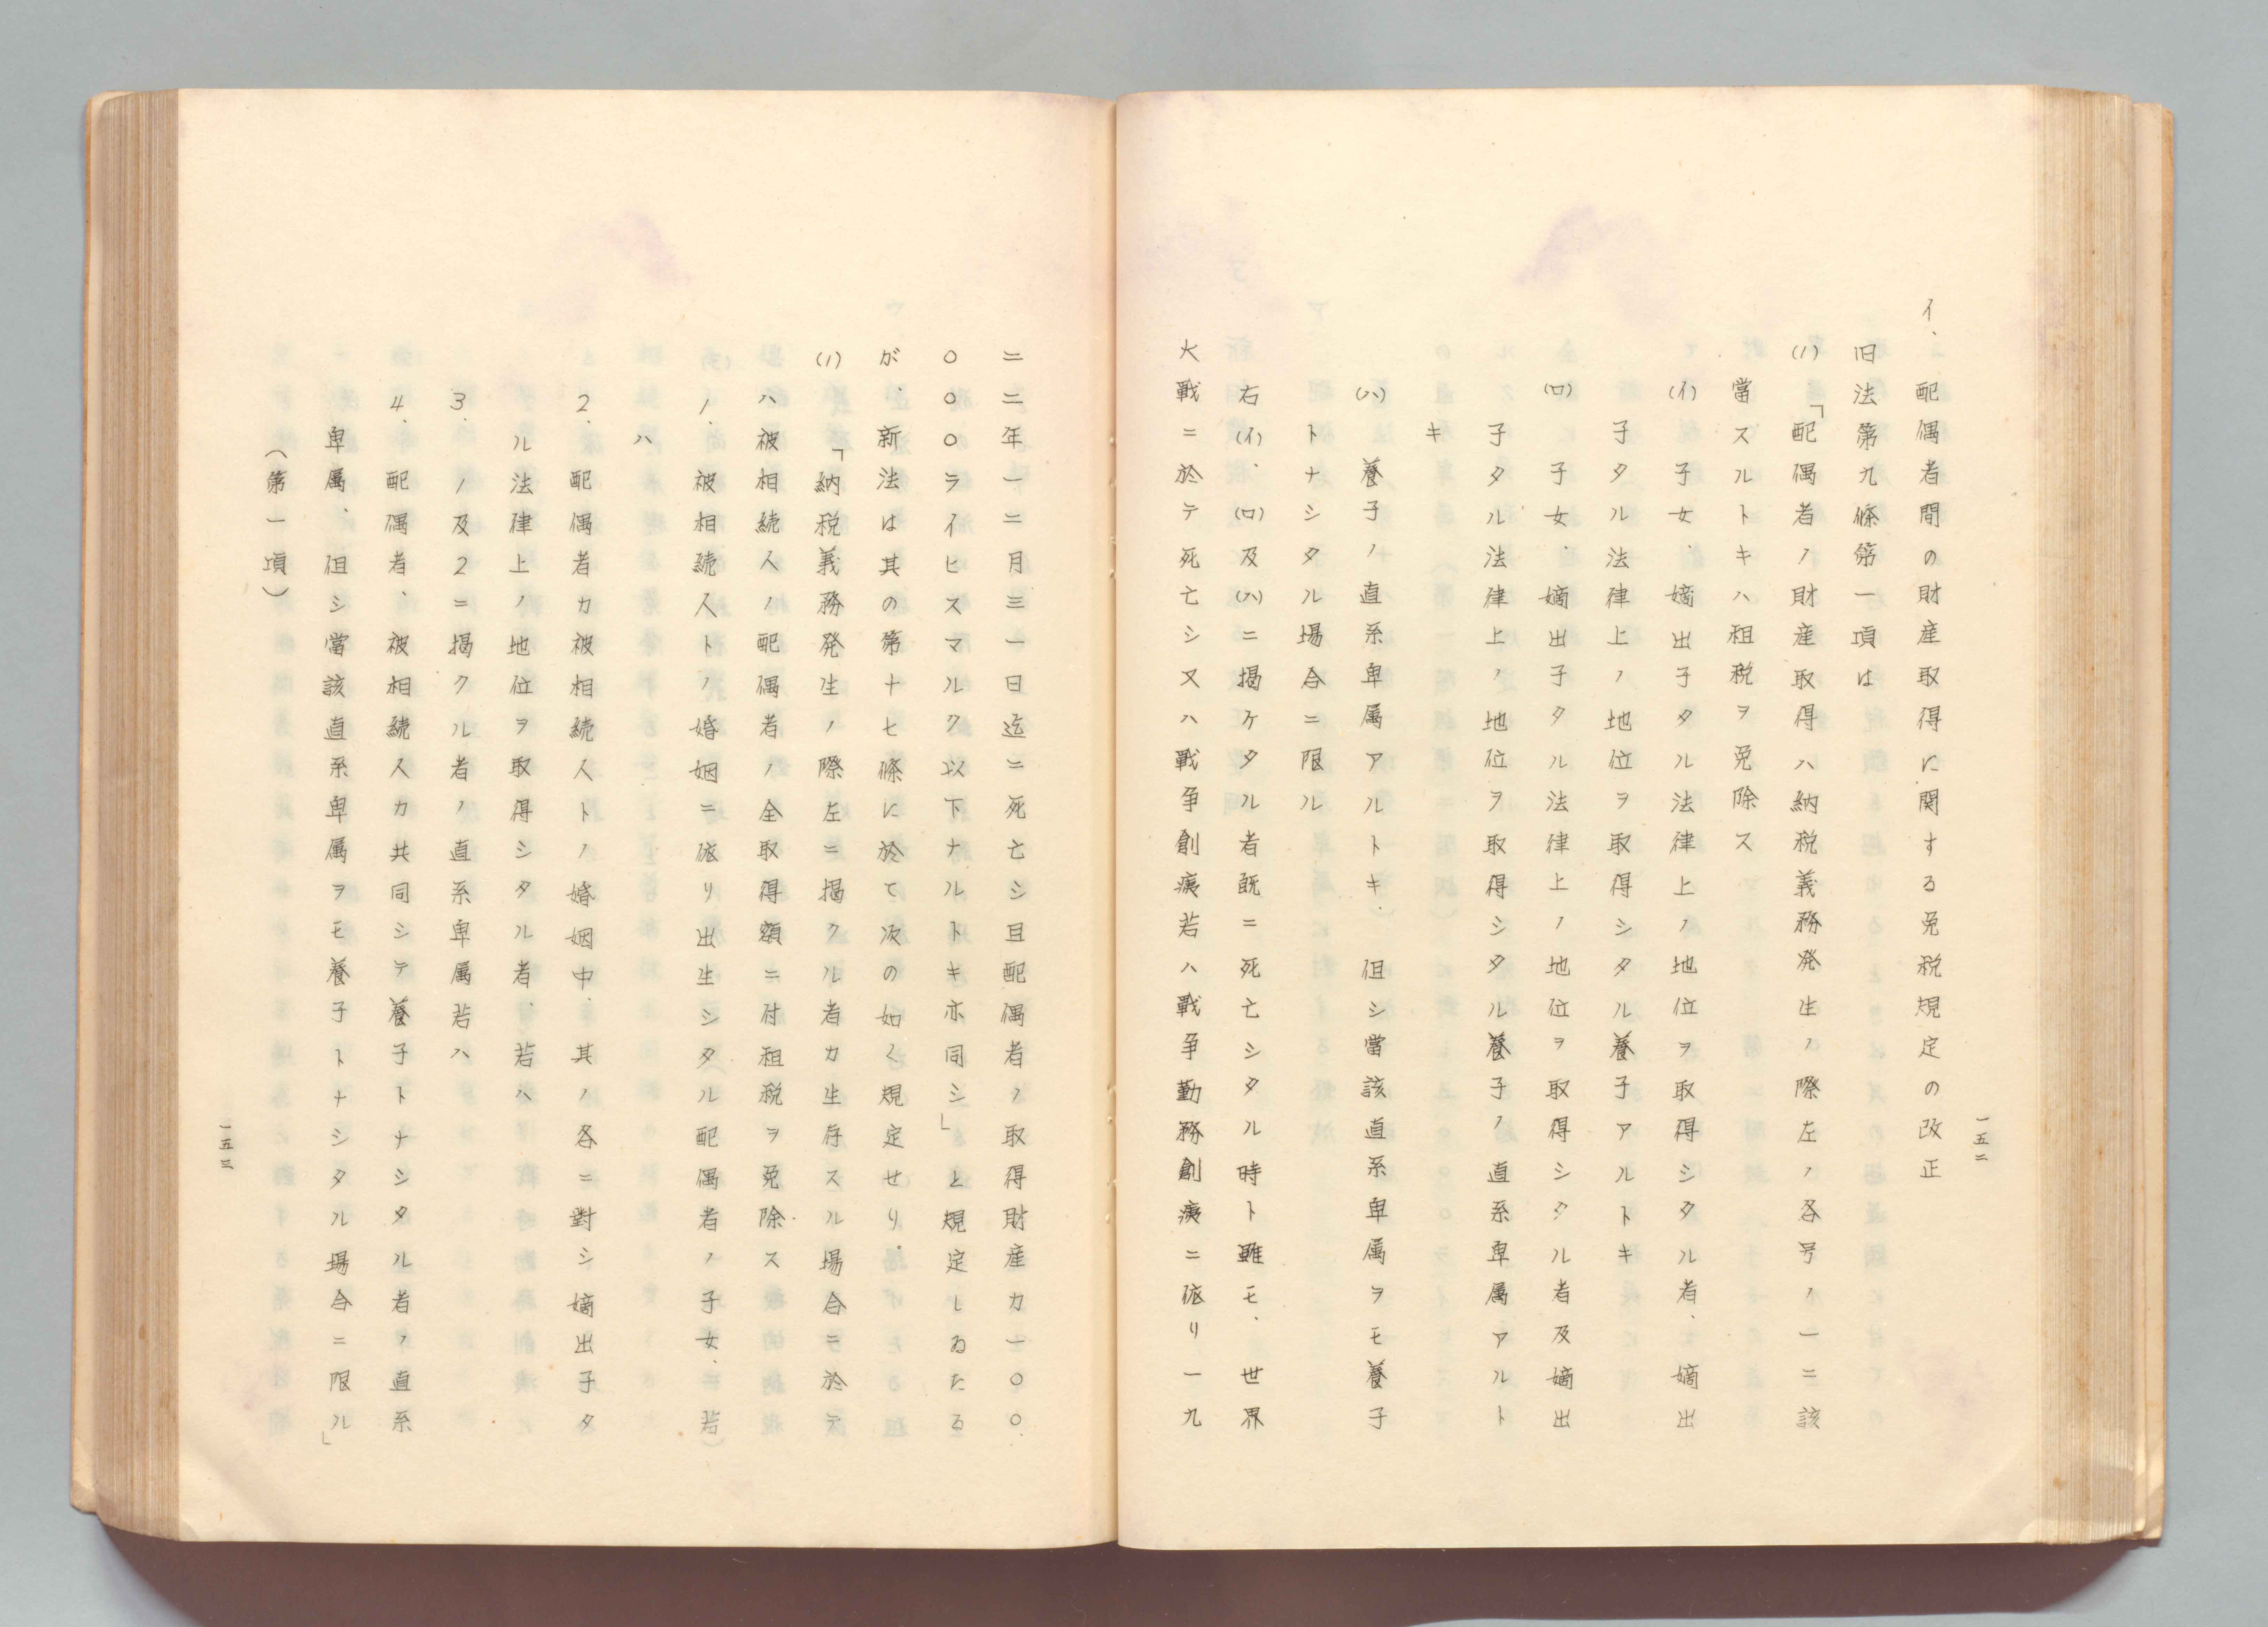 一五二
イ、配偶者間の財産取得に関する免税規定の改正
旧法第九條第一項は
(1)「配偶者ノ財産取得ハ納税義務発生ノ際左ノ各号ノ一ニ該
當スルトキハ租税ヲ免除ス
(イ)子女、嫡出子タル法律上ノ地位ヲ取得シタル者、嫡出
子タル法律上ノ地位ヲ取得シタル養子アルトキ
(ロ)子女、嫡出子タル法律上ノ地位ヲ取得シタル者及嫡出
子タル法律上ノ地位ヲ取得シタル養子ノ直系卑属アルト
キ
(ハ)養子ノ直系卑属アルトキ、但シ當該直系卑属ヲモ養子
トナシタル場合ニ限ル
右(イ)、(ロ)及(ハ)ニ掲ケタル者既ニ死亡シタル時ト雖モ、世界
大戦ニ於テ死亡シ又ハ戦争創痍若ハ戦争勤務創痍ニ依リ一九
二二年一二月三一日迄ニ死亡シ且配偶者ノ取得財産カ一〇〇、
〇〇〇ライヒスマルク以下ナルトキ亦同シ」と規定しゐたる
が、新法は其の第十七條に於て次の如く規定せり。
(1)「納税義務発生ノ際左ニ掲クル者カ生存スル場合ニ於テ
ハ被相続人ノ配偶者ノ全取得額ニ付租税ヲ免除ス
1、被相続人トノ婚姻ニ依リ出生シタル配偶者ノ子女、若
ハ
2、配偶者カ被相続人トノ婚姻中、其ノ各ニ對シ嫡出子タ
ル法律上ノ地位ヲ取得シタル者、若ハ
3、ノ及2ニ掲クル者ノ直系卑属若ハ
4、配偶者、被相続人カ共同シテ養子トナシタル者ノ直系
卑属、但シ當該直系卑属ヲモ養子トナシタル場合ニ限ル」
（第一項）
一五三